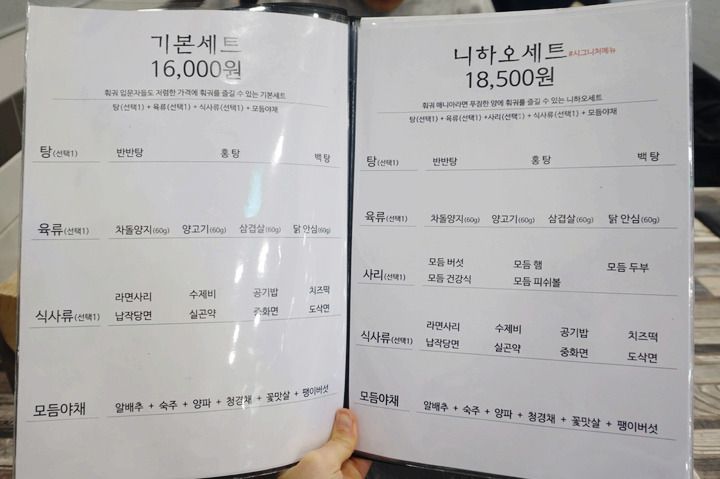 기본세트
16,000원
훠궈 입문자들도 저렴한 가격에 훠궈를 즐길 수 있는 기본세트
탕(선택1) + 육류(선택1) + 식사류(선택1) + 모듬야채
탕(선택1) 반반탕 홍 탕 백 탕
육류(선택1) 차돌양지(60g) 양고기(60g) 삼겹살(60g) 닭 안심(60g)
식사류(선택1) 라면사리 수제비 공기밥 치즈떡
납작당면 실곤약 중화면 도삭면
모듬야채 알배추 + 숙주 + 양파 + 청경채 + 꽃맛살 + 팽이버섯
니하오세트 #시그니처메뉴
18,500원
훠궈 매니아라면 푸짐한 양에 훠궈를 즐길 수 있는 니하오세트
탕(선택1) + 육류(선택1) +사리(선택1) + 식사류(선택1) + 모듬야채
탕(선택1) 반반탕 홍 탕 백 탕
육류(선택1) 차돌양지(60g) 양고기(60g) 삼겹살(60g) 닭 안심(60g)
사리(선택1) 모듬 버섯 모듬 햄 모듬 두부
모듬 건강식 모듬 피쉬볼
식사류(선택1) 라면사리 수제비 공기밥 치즈떡
납작당면 실곤약 중화면 도삭면
모듬야채 알배추 + 숙주 + 양파 + 청경채 + 꽃맛살 + 팽이버섯